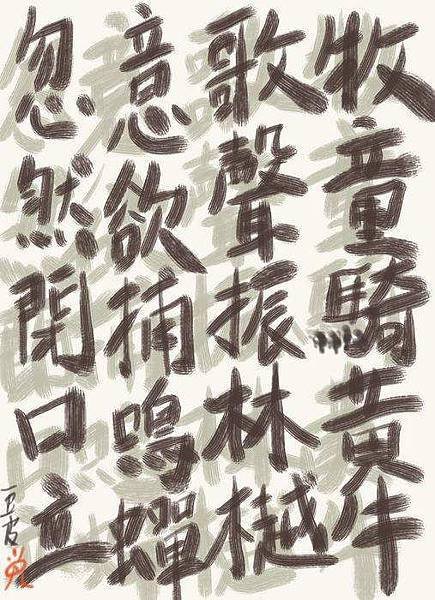 牧童騎黃牛
歌聲振林樾
意欲捕鳴蟬
忽然閉口立